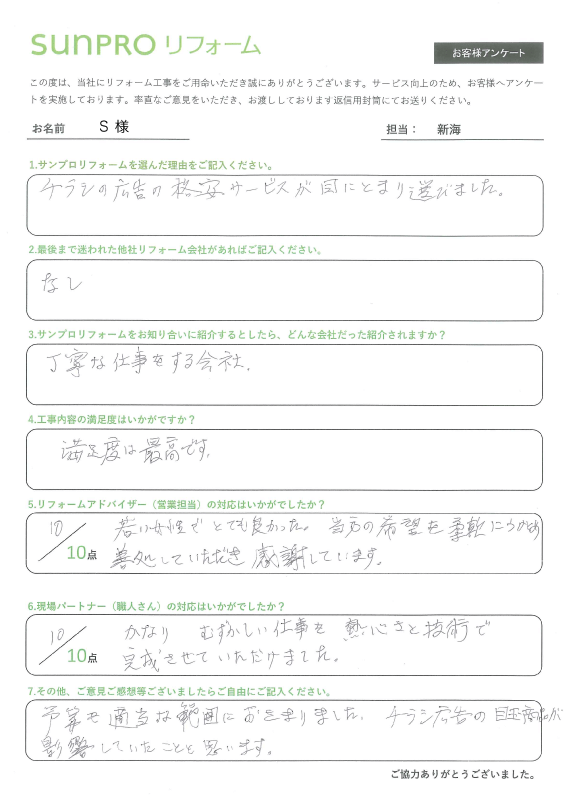 SUNPRO リフォーム
お客様アンケート
この度は、当社にリフォーム工事をご用命いただき誠にありがとうございます。サービス向上のため、お客様へアンケー
トを実施しております。率直なご意見をいただき、お渡ししております返信用封筒にてお送りください。
お名前 S 様 担当： 新海
1.サンプロリフォームを選んだ理由をご記入ください。
チラシの広告の格安サービスが目にとまり選びました。
2.最後まで迷われた他社リフォーム会社があればご記入ください。
なし
3.サンプロリフォームをお知り合いに紹介するとしたら、どんな会社だった紹介されますか？
丁寧な仕事をする会社.
4.工事内容の満足度はいかがですか？
満足度は最高です。
5.リフォームアドバイザー（営業担当）の対応はいかがでしたか？
10／10点 若い女性でとても良かった。当方の希望を柔軟に
善処していただき感謝しています。
6.現場パートナー（職人さん）の対応はいかがでしたか？
10／10点 かなり むずかしい仕事を 熱心さと技術で
完成させていただけました。
7.その他、ご意見ご感想等ございましたらご自由にご記入ください。
予算も適当な範囲におさまりました. チラシ広告の目玉商品が
影響していたことと思います。
ご協力ありがとうございました。